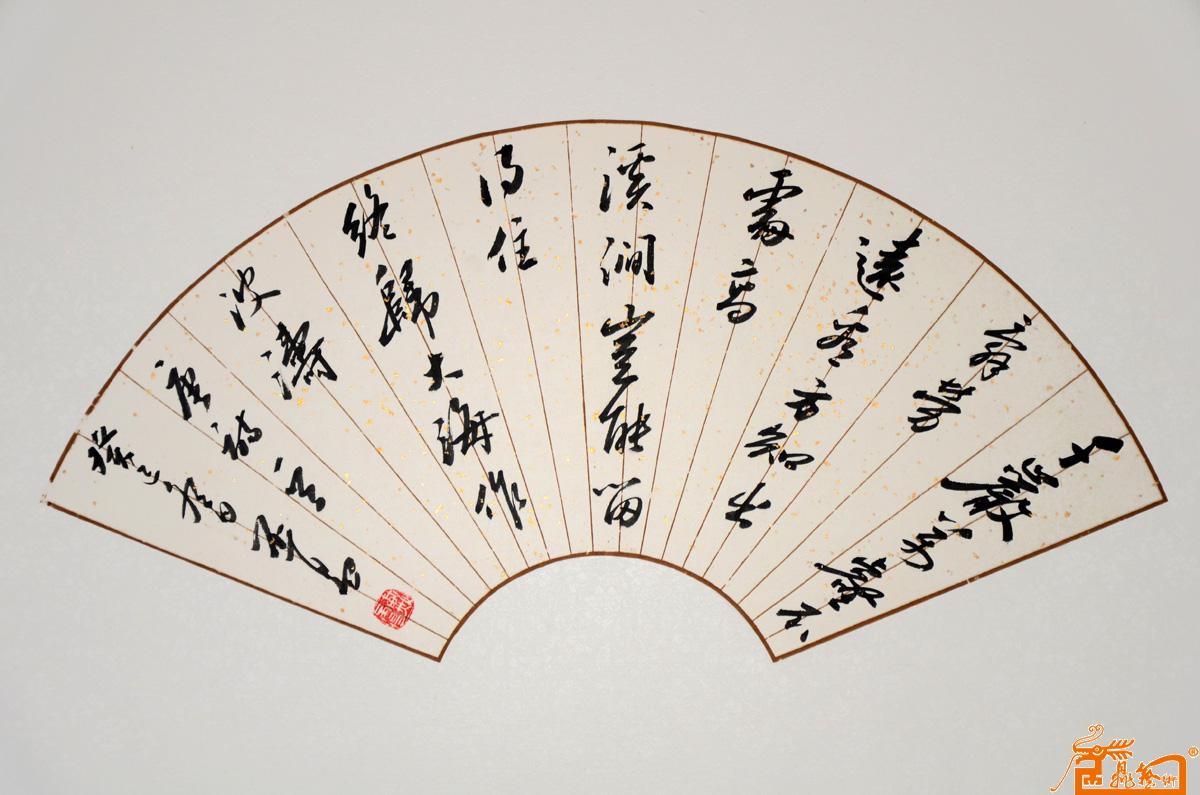 千巖萬壑不
辭勞
遠看方知出
處高
溪澗豈能留
得住
終歸大海作
波濤
唐詩一首
癸巳春